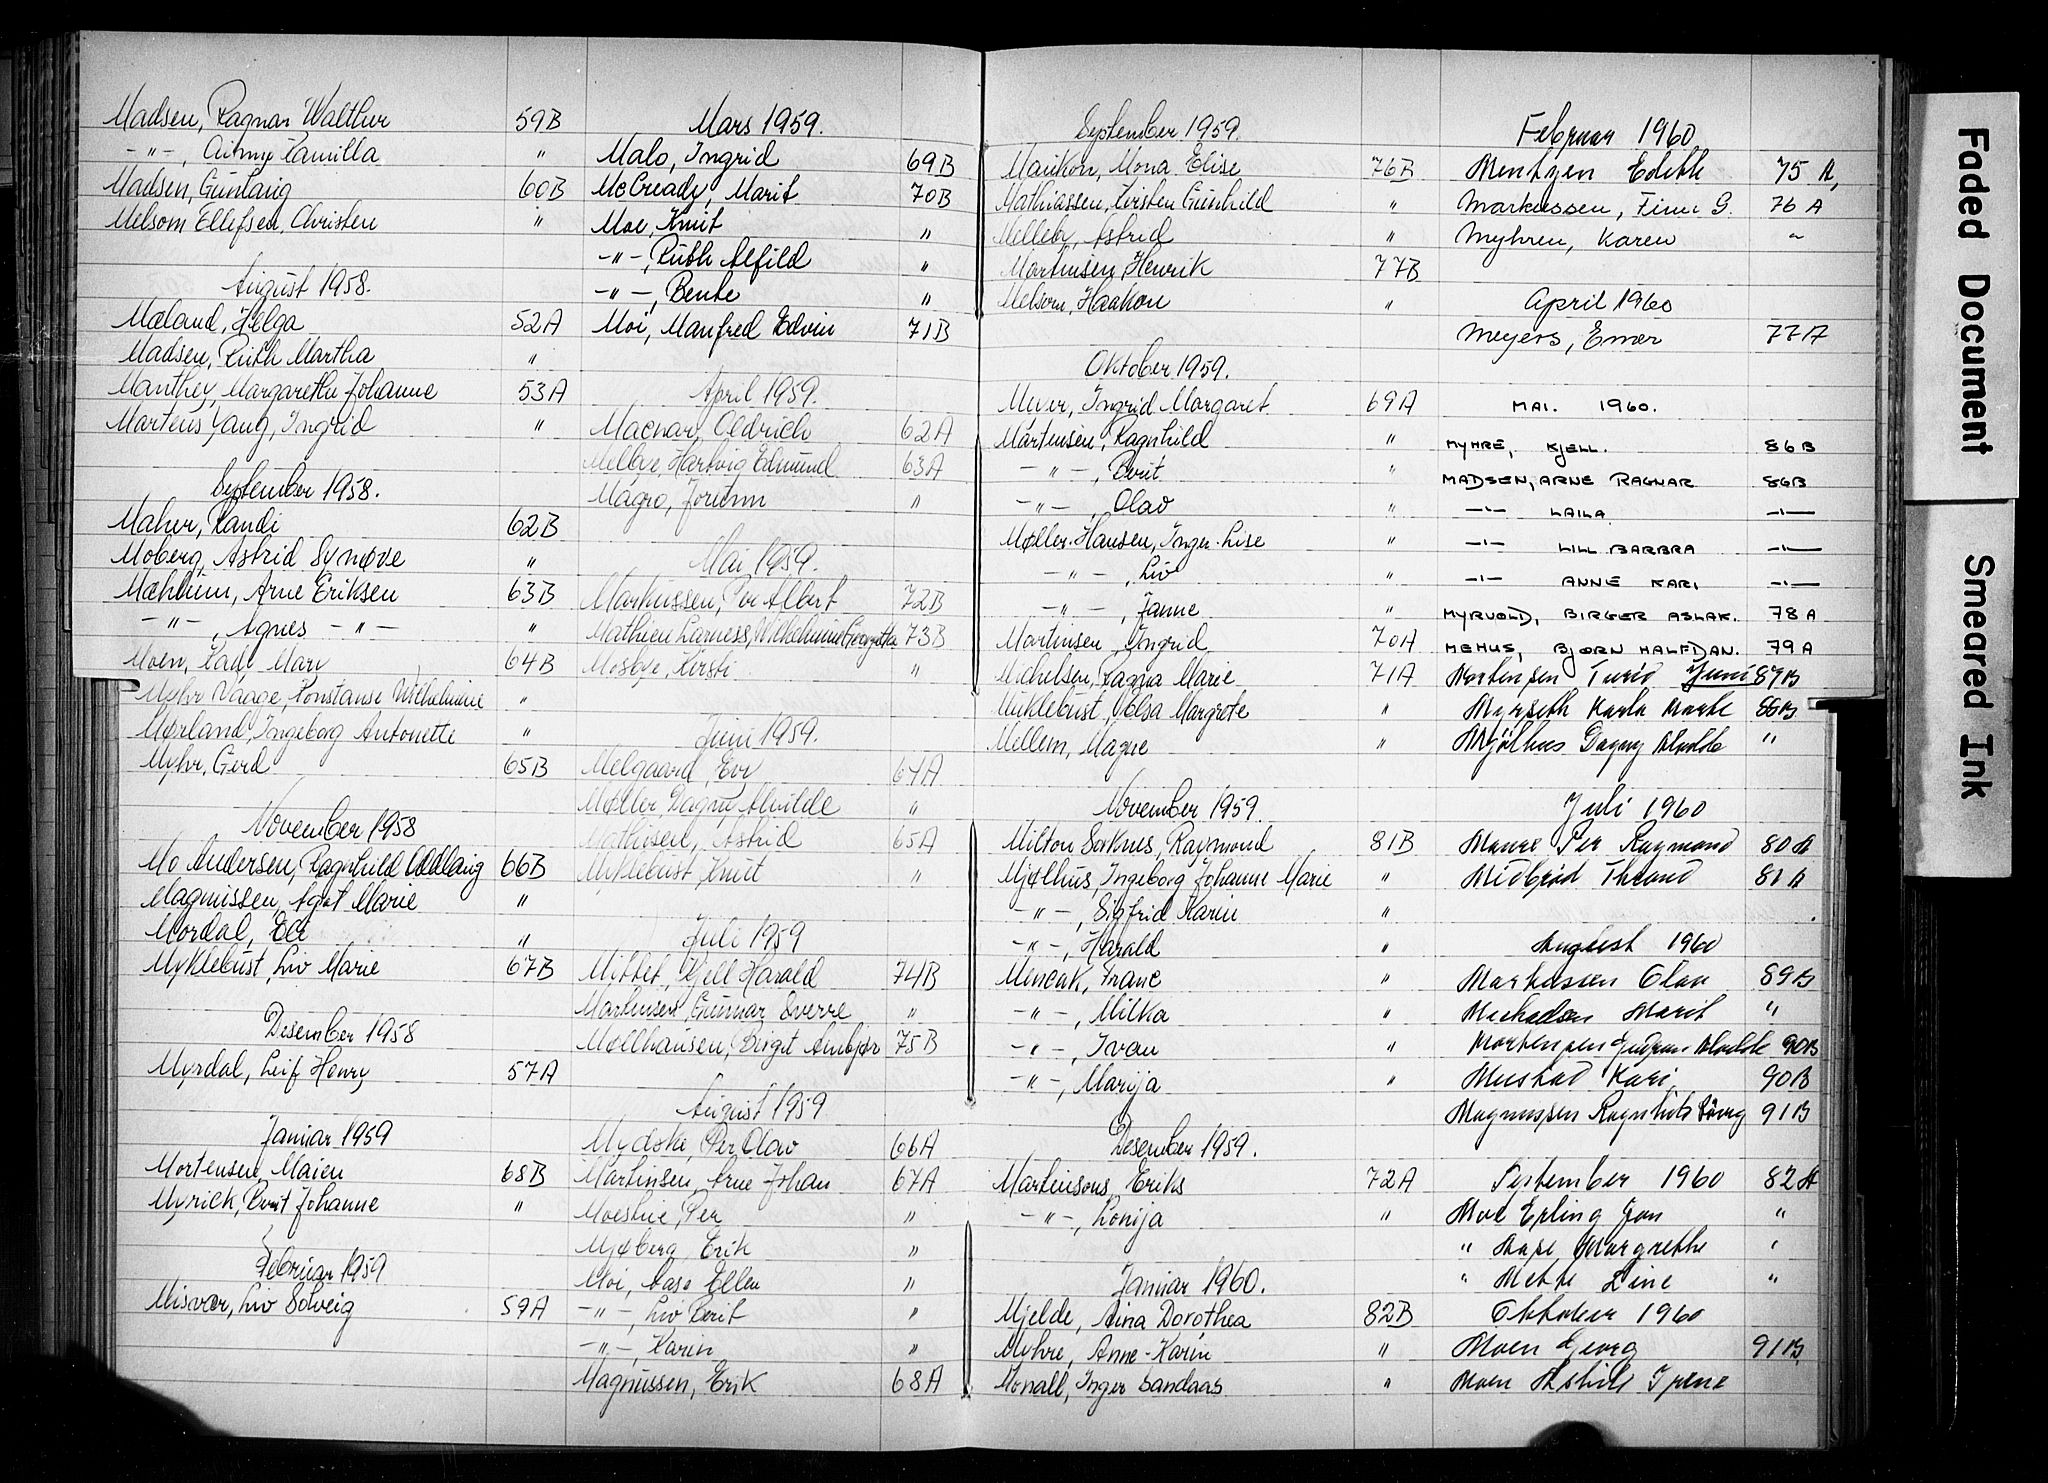 Madsen, Ragnar Walther 59B
-"-, Camilla "
Madsen, Gunlaug 60B
Melsom Ellefsen, Christen "
August 1958.
Mæland, Helga 52A
Madsen, Ruth Martha "
Manthey, Margarethe Johanne 53A
Martens Yang, Ingrid "
September 1958.
Maher, Randi 62B
Moberg, Astrid Synnøve "
Mæhlum, Arne Eriksen 63B
-"-, Agnes -"- "
Moen, Mary 64B
Myhr Vaage, Konstanse Wilhelmine "
Mørland, Ingeborg Antonette "
Myhr, Gerd 65B
November 1958
Mo Andersen, Ragnhild Oddlaug 66B
Magnussen, Agot Marie "
Mordal, Else "
Myklebust, Liv Marie 67B
Desember 1958
Myrdal, Leif Henry 57A
Januar 1959
Mortensen, Maien 68B
Myrick, Berit Johanne "
Februar 1959
Misvær, Liv Solveig 59A
Mars 1959.
Malo, Ingrid 69B
McCready, Marit 70B
Moe, Knut "
-"-, Ruth Alfild "
-"-, Bente "
Moi, Manfred Edvin 71B
April 1959.
Macnar, Oldrich 62A
Melbye, Hartvig Edmund 63A
Magro, Jorunn "
Mai 1959.
Markussen, Per Albert 72B
Mathieu Larness, Wilhelmine Georgette 73B
Mosbye, Kirsti "
Juni 1959.
Melgaard, Evy 64A
Møller, Dagny Alvilde "
Mathisen, Astrid 65A
Myklebust, Knut "
Juli 1959
Mittet, Kjell Harald 74B
Martinsen, Gunnar Sverre "
Møllhausen, Birgit Annbjør 75B
August 1959
Mydske, Per Olav 66A
Martinsen, Arne Johan 67A
Moestue, Per "
Mjøberg, Erik "
Moi, Aase Ellen "
-"-, Liv Berit "
-"-, Karin "
Magnussen, Erik 68A
September 1959.
Maukon, Mona Elise 76B
Mathiassen, Kirsten Gunhild "
Melleby, Astrid "
Martinsen, Henrik 77B
Melsom, Haakon "
Oktober 1959.
Meyer, Ingrid Margaret 69A
Martensen, Ragnhild "
-"-, Berit "
-"-, Olav "
Møller-Hansen, Inger-Lise "
-"-, Liv "
-"-, Janne "
Martinsen, Ingrid 70A
Michelsen, Ragna Marie 71A
Myklebust, Olsa Margrete "
Mellem, Magne "
November 1959.
Milton Soknes, Raymond 81B
Mjølhus, Ingeborg Johanne Marie "
-"-, Sigfrid Karin "
-"-, Harald "
Mencak, Franc "
-"-, Milka "
-"-, Ivan "
-"-, Marija "
Desember 1959.
Martinsons, Eriks 72A
-"-, Lonija "
Januar 1960.
Mjelde, Aina Dorothea 82B
Myhre, Anne-Karin "
Monall, Inger Sandaas "
Februar 1960
Mentzen Edith 75 A,
Markussen, Finn G. 76 A
Myhren, Karen "
April 1960
Meyers, Emer 77A
MAI. 1960.
MYHRE, KJELL. 86B
MADSEN, ARNE RAGNAR 86B
-"- LAILA -"-
-"- LILL BARBRA -"-
-"- ANNE KARI -"-
MYRVOLD, BIRGER ASLAK. 78A
MEHUS, BJØRN HALFDAN. 79A
Mortensen Turid Juni 87B
Myrseth Karla Marte 88B
Mjölhus Dagny Alvilde "
Juli 1960
Per Raymond 80A
Midbröd Thrond 81A
August 1960
Markussen Olav 89B
Michaelsen Marit "
Mortensen Gudrun Alvilde 90B
Mustad Kari, 90B
Magnussen Ragnhild Sövrg 91B
September 1960 82A
Moe Erling Jon "
" Aase Margrethe "
" Mette Line "
Oktober 1960
Moen Georg 91B
Moen Astrid Irene
Faded Document
Smeared Ink